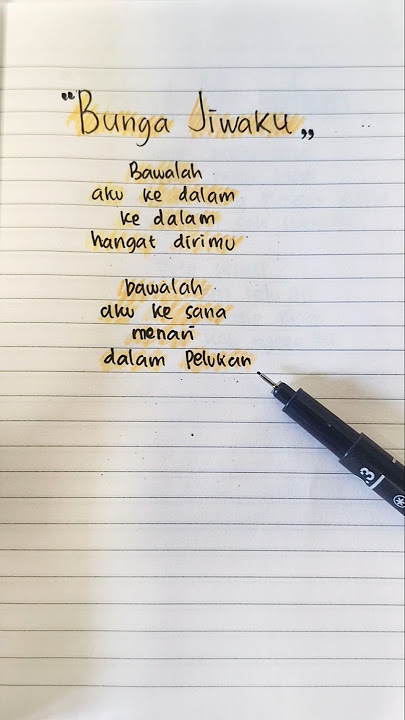 "Bunga Jiwaku"
Bawalah
aku ke dalam
ke dalam
hangat dirimu
bawalah
aku ke sana
menari
dalam Pelukan
.3